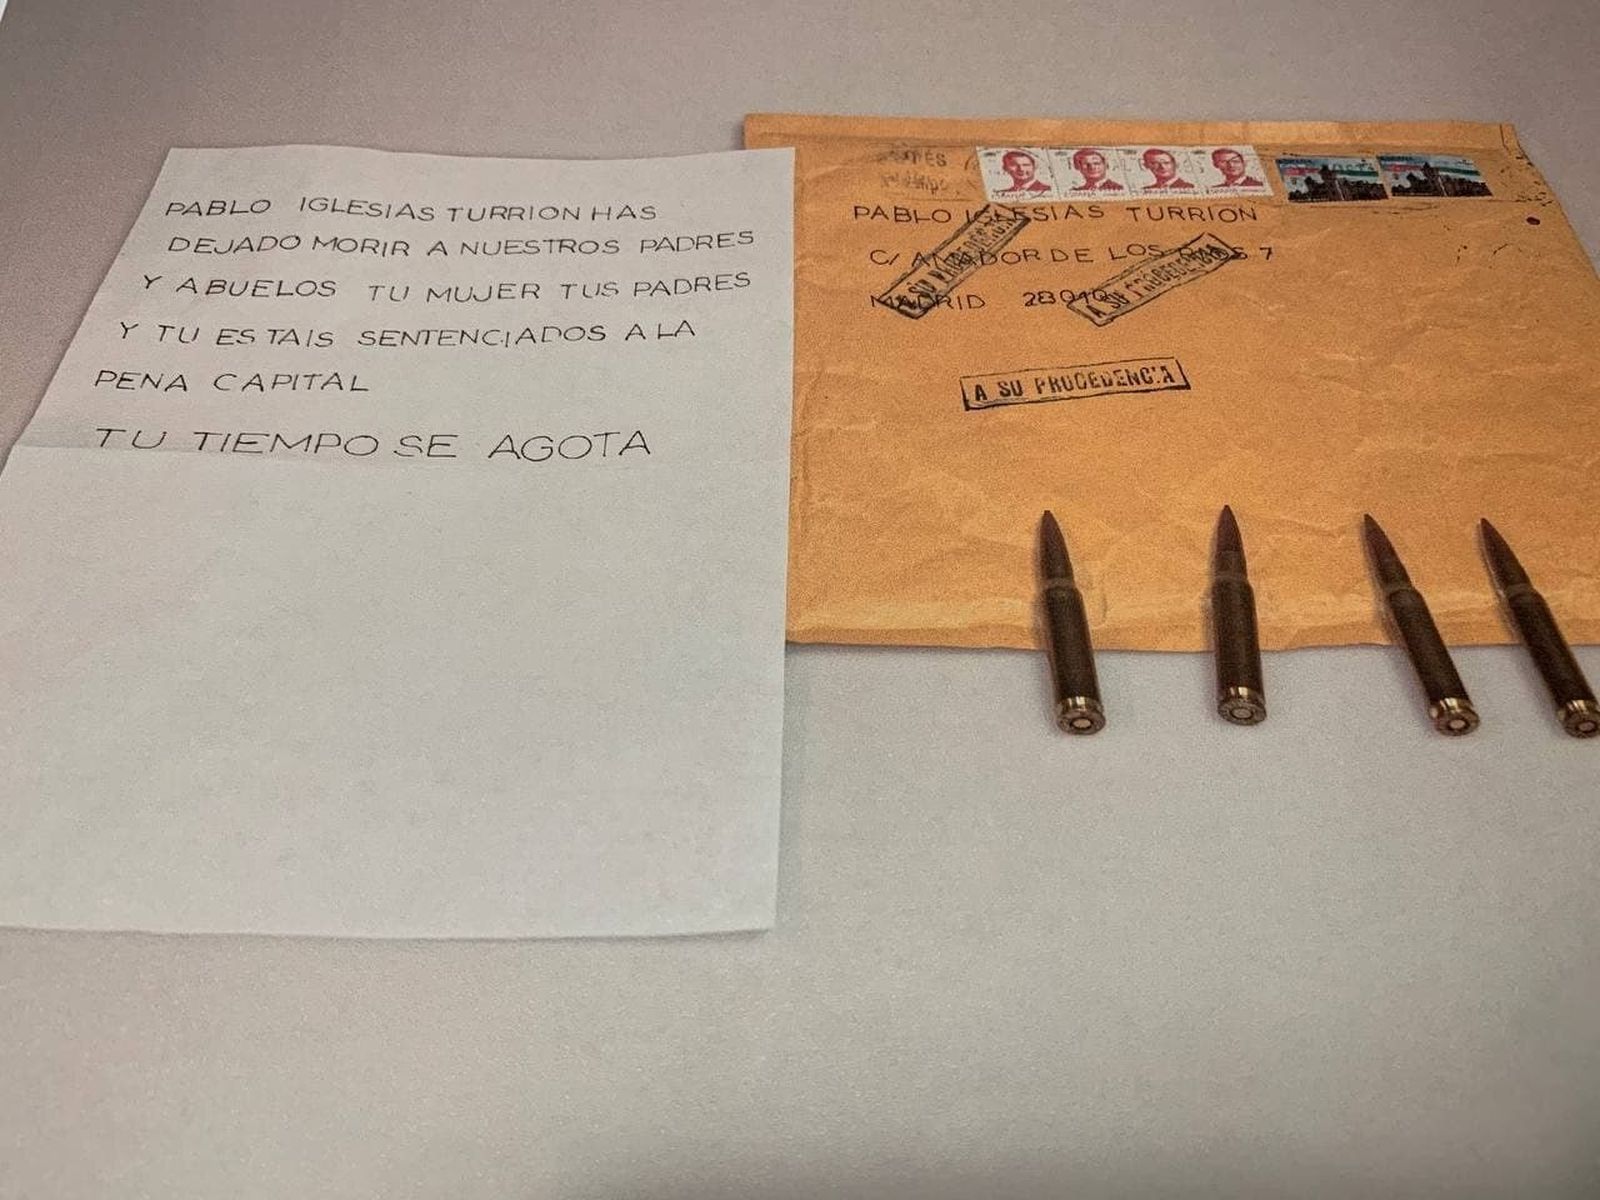 PABLO IGLESIAS TURRION HAS
DEJADO MORIR A NUESTROS PADRES
Y ABUELOS TU MUJER TUS PADRES
Y TU ESTAIS SENTENCIADOS A LA
PENA CAPITAL
TU TIEMPO SE AGOTA
PABLO IGLESIAS TURRION
C/ AMADOR DE LOS RIOS 7
MADRID 28010
A SU PROCEDENCIA
A SU PROCEDENCIA
A SU PROCEDENCIA